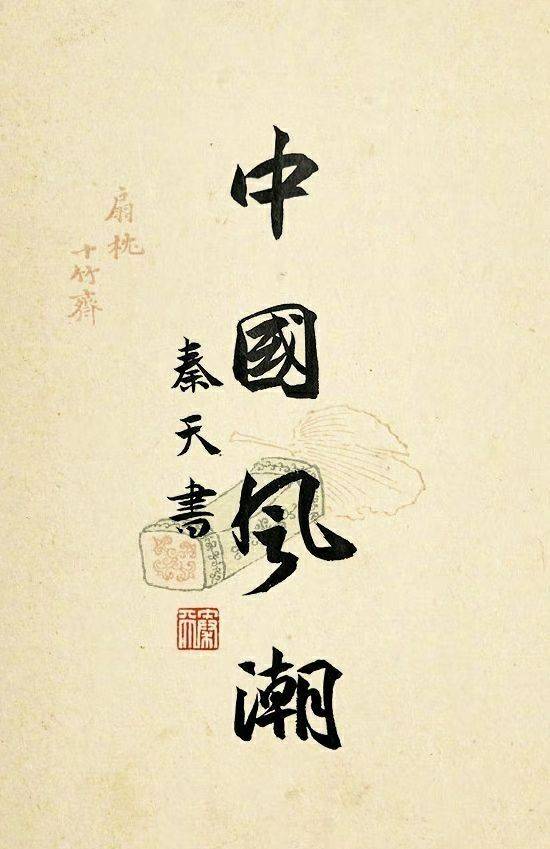 中國风潮
秦天書
扇枕
十竹齋